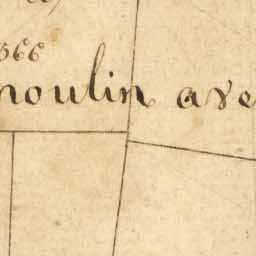 366
moulin ave